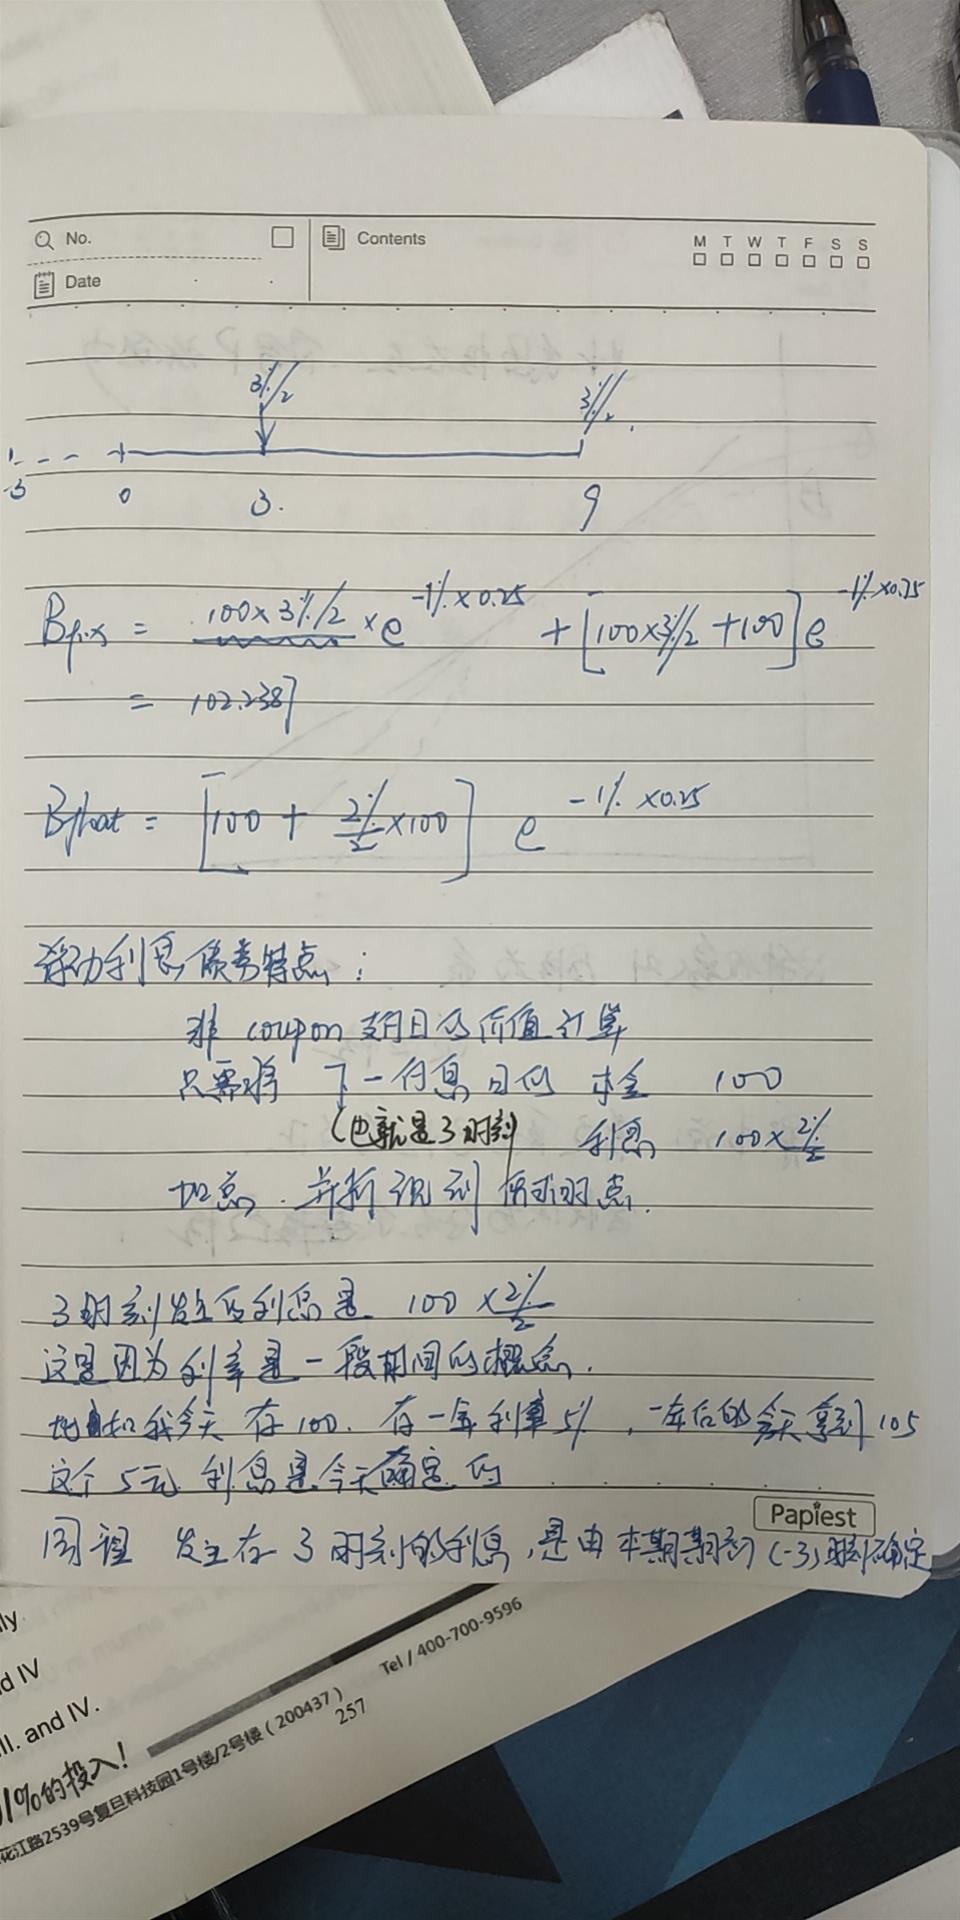 No.
Contents
M T W T F S S
Date
3%/2
3%/2
-3 0 3. 9
Bfix = 100×3%/2 × e^-1%×0.25 + [100×3%/2 +100] e^-1%×0.75
= 102.2387
Bfloat = [100 + 2%/2 ×100] e^-1%×0.25
浮动利息债券特点：
非 coupon 支付日的价值计算
只需将 下一付息日的 本金 100
(也就是3时刻 利息 100×2%/2
加总，并折现到 所求时点.
3时刻发生的利息是 100×2%/2
这是因为利率是一段期间的概念.
比如我今天 存100. 存一年利率5%，一年后的今天拿到105
这个5元 利息是今天确定的
Papiest
同理 发生在3时刻的利息，是由本期期初(-3)时刻确定
ly
d IV
II. and IV.
1%的投入!
花江路2539号复旦科技园1号楼/2号楼 ( 200437 )
257
Tel / 400-700-9596